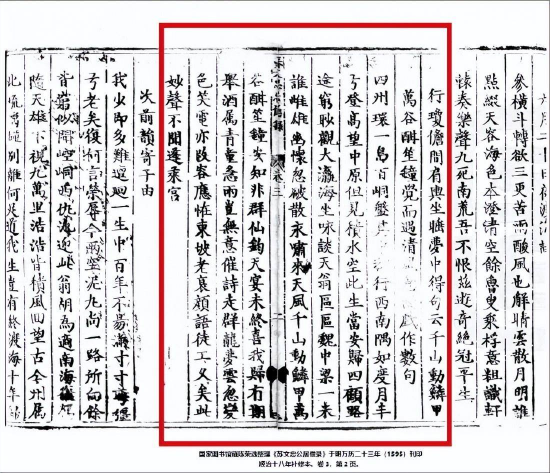 六月二十日夜渡海
參橫斗轉欲三更苦雨酸風也解晴雲散月明誰
點綴天容海色本澄清空餘魯叟乘桴意粗識軒
轅奏樂聲九死南荒吾不恨茲遊奇絕冠平生
行瓊儋間肩輿坐睡夢中得句云千山動鱗甲
萬谷酣笙鐘覺而遇清戲作數句
四州環一島百峒蟠行西南隅如度月半
弓登高望中原但見積水空此生當安歸四顧
途窮眇觀大瀛海坐詠談天翁區區魏中梁一米
誰雌雄幽懷忽破散永嘯來天風千山動鱗甲萬
谷酣笙鐘安知非群仙鈞天宴未終喜我歸有期
舉酒屬青童急雨豈無意催詩走群龍夢雲忽變
色笑電亦改容應怪東坡老衰顏語徒工久矣此
妙聲不聞蓬萊宮
卷三
二
次前韻寄子由
我少即多難邅迴一生中百年不易滿寸寸彎
弓老矣復何言榮辱今兩空泥丸尚一路所向餘
皆窮似聞崆峒西仇池迎此翁胡為適南海復
天雄下視九萬里浩浩皆積風回望古州屬
此琉璃別離何足道我生豈有終渡海十年歸
国家图书馆藏陈荣选整理《苏文忠公居儋录》于明万历二十三年（1595）刊印
顺治十八年补修本、卷3、第2页。